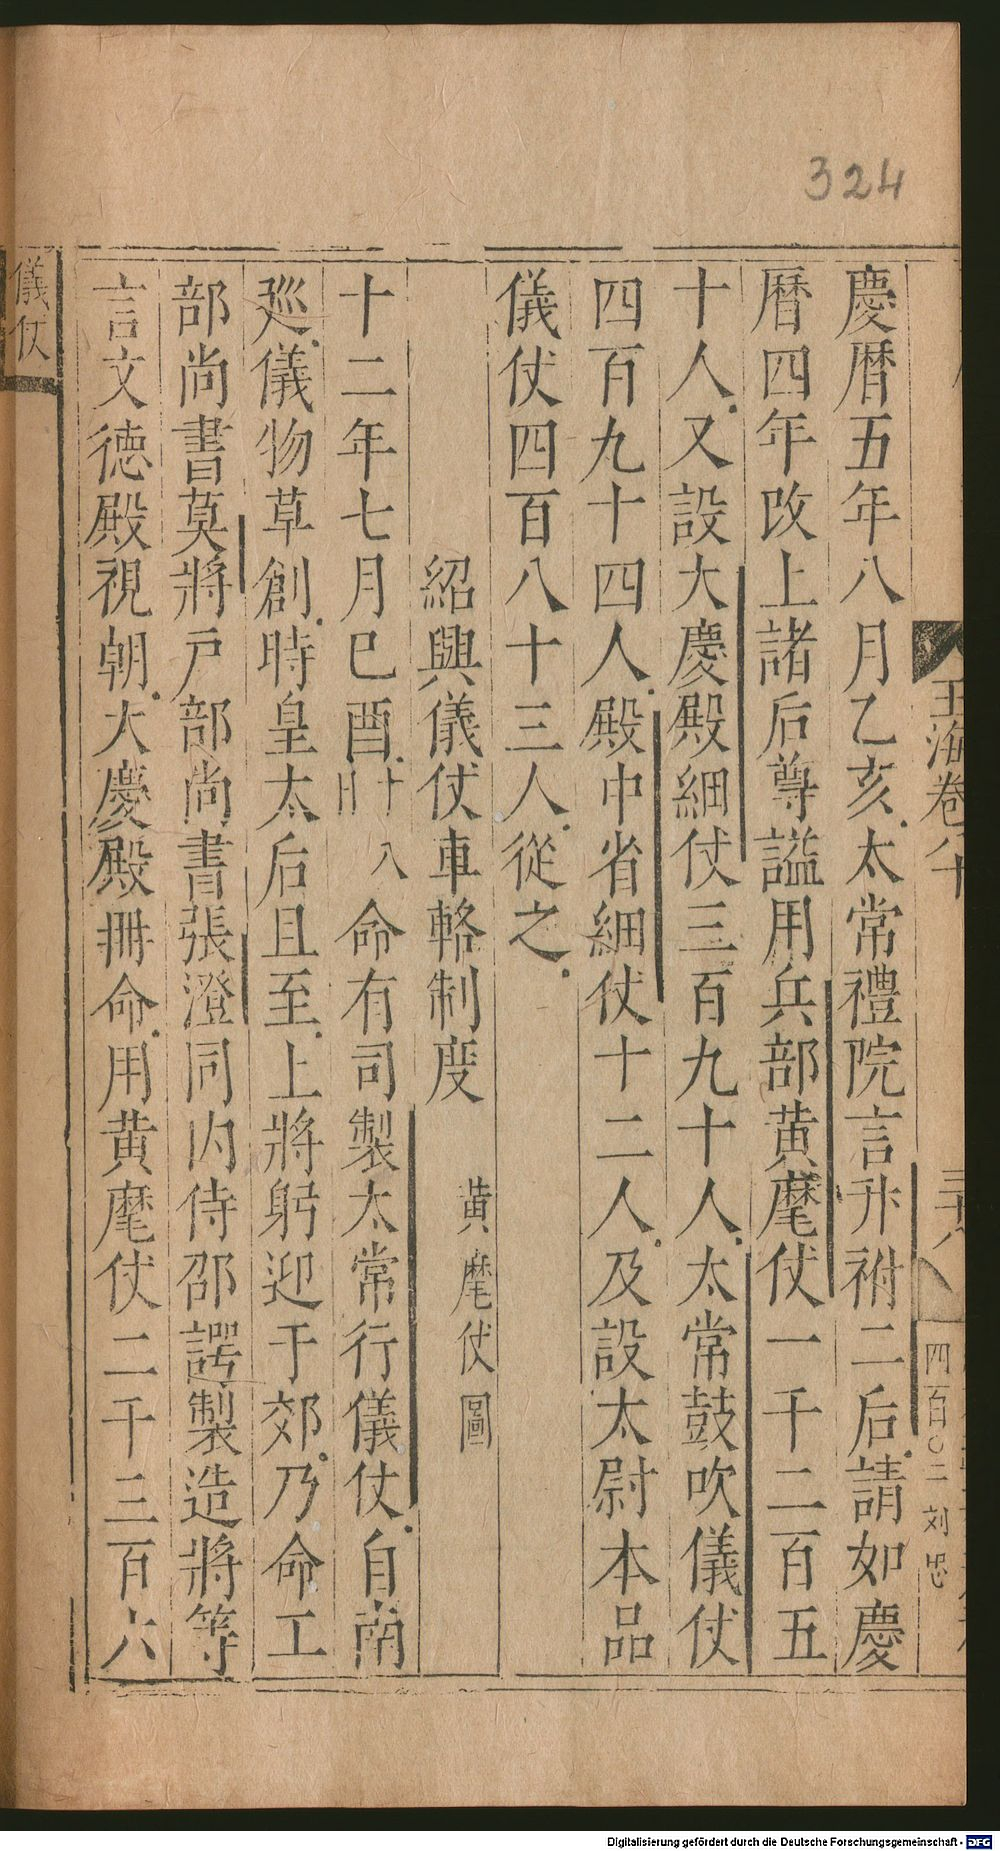 324
玉海卷八十
四百〇二 刘忠
慶曆五年八月乙亥太常禮院言升祔二后請如慶
曆四年改上諸后尊謚用兵部黄麾仗一千二百五
十人又設大慶殿細仗三百九十人太常鼓吹儀仗
四百九十四人殿中省細仗十二人及設太尉本品
儀仗四百八十三人從之
紹興儀仗車輅制度 黄麾仗圖
十二年七月巳酉十八日命有司製太常行儀仗自南
巡儀物草創時皇太后且至上將躬迎于郊乃命工
部尚書莫將戶部尚書張澄同内侍邵諤製造將等
言文德殿視朝大慶殿冊命用黄麾仗二千三百六
儀仗
Digitalisierung gefördert durch die Deutsche Forschungsgemeinschaft - DFG